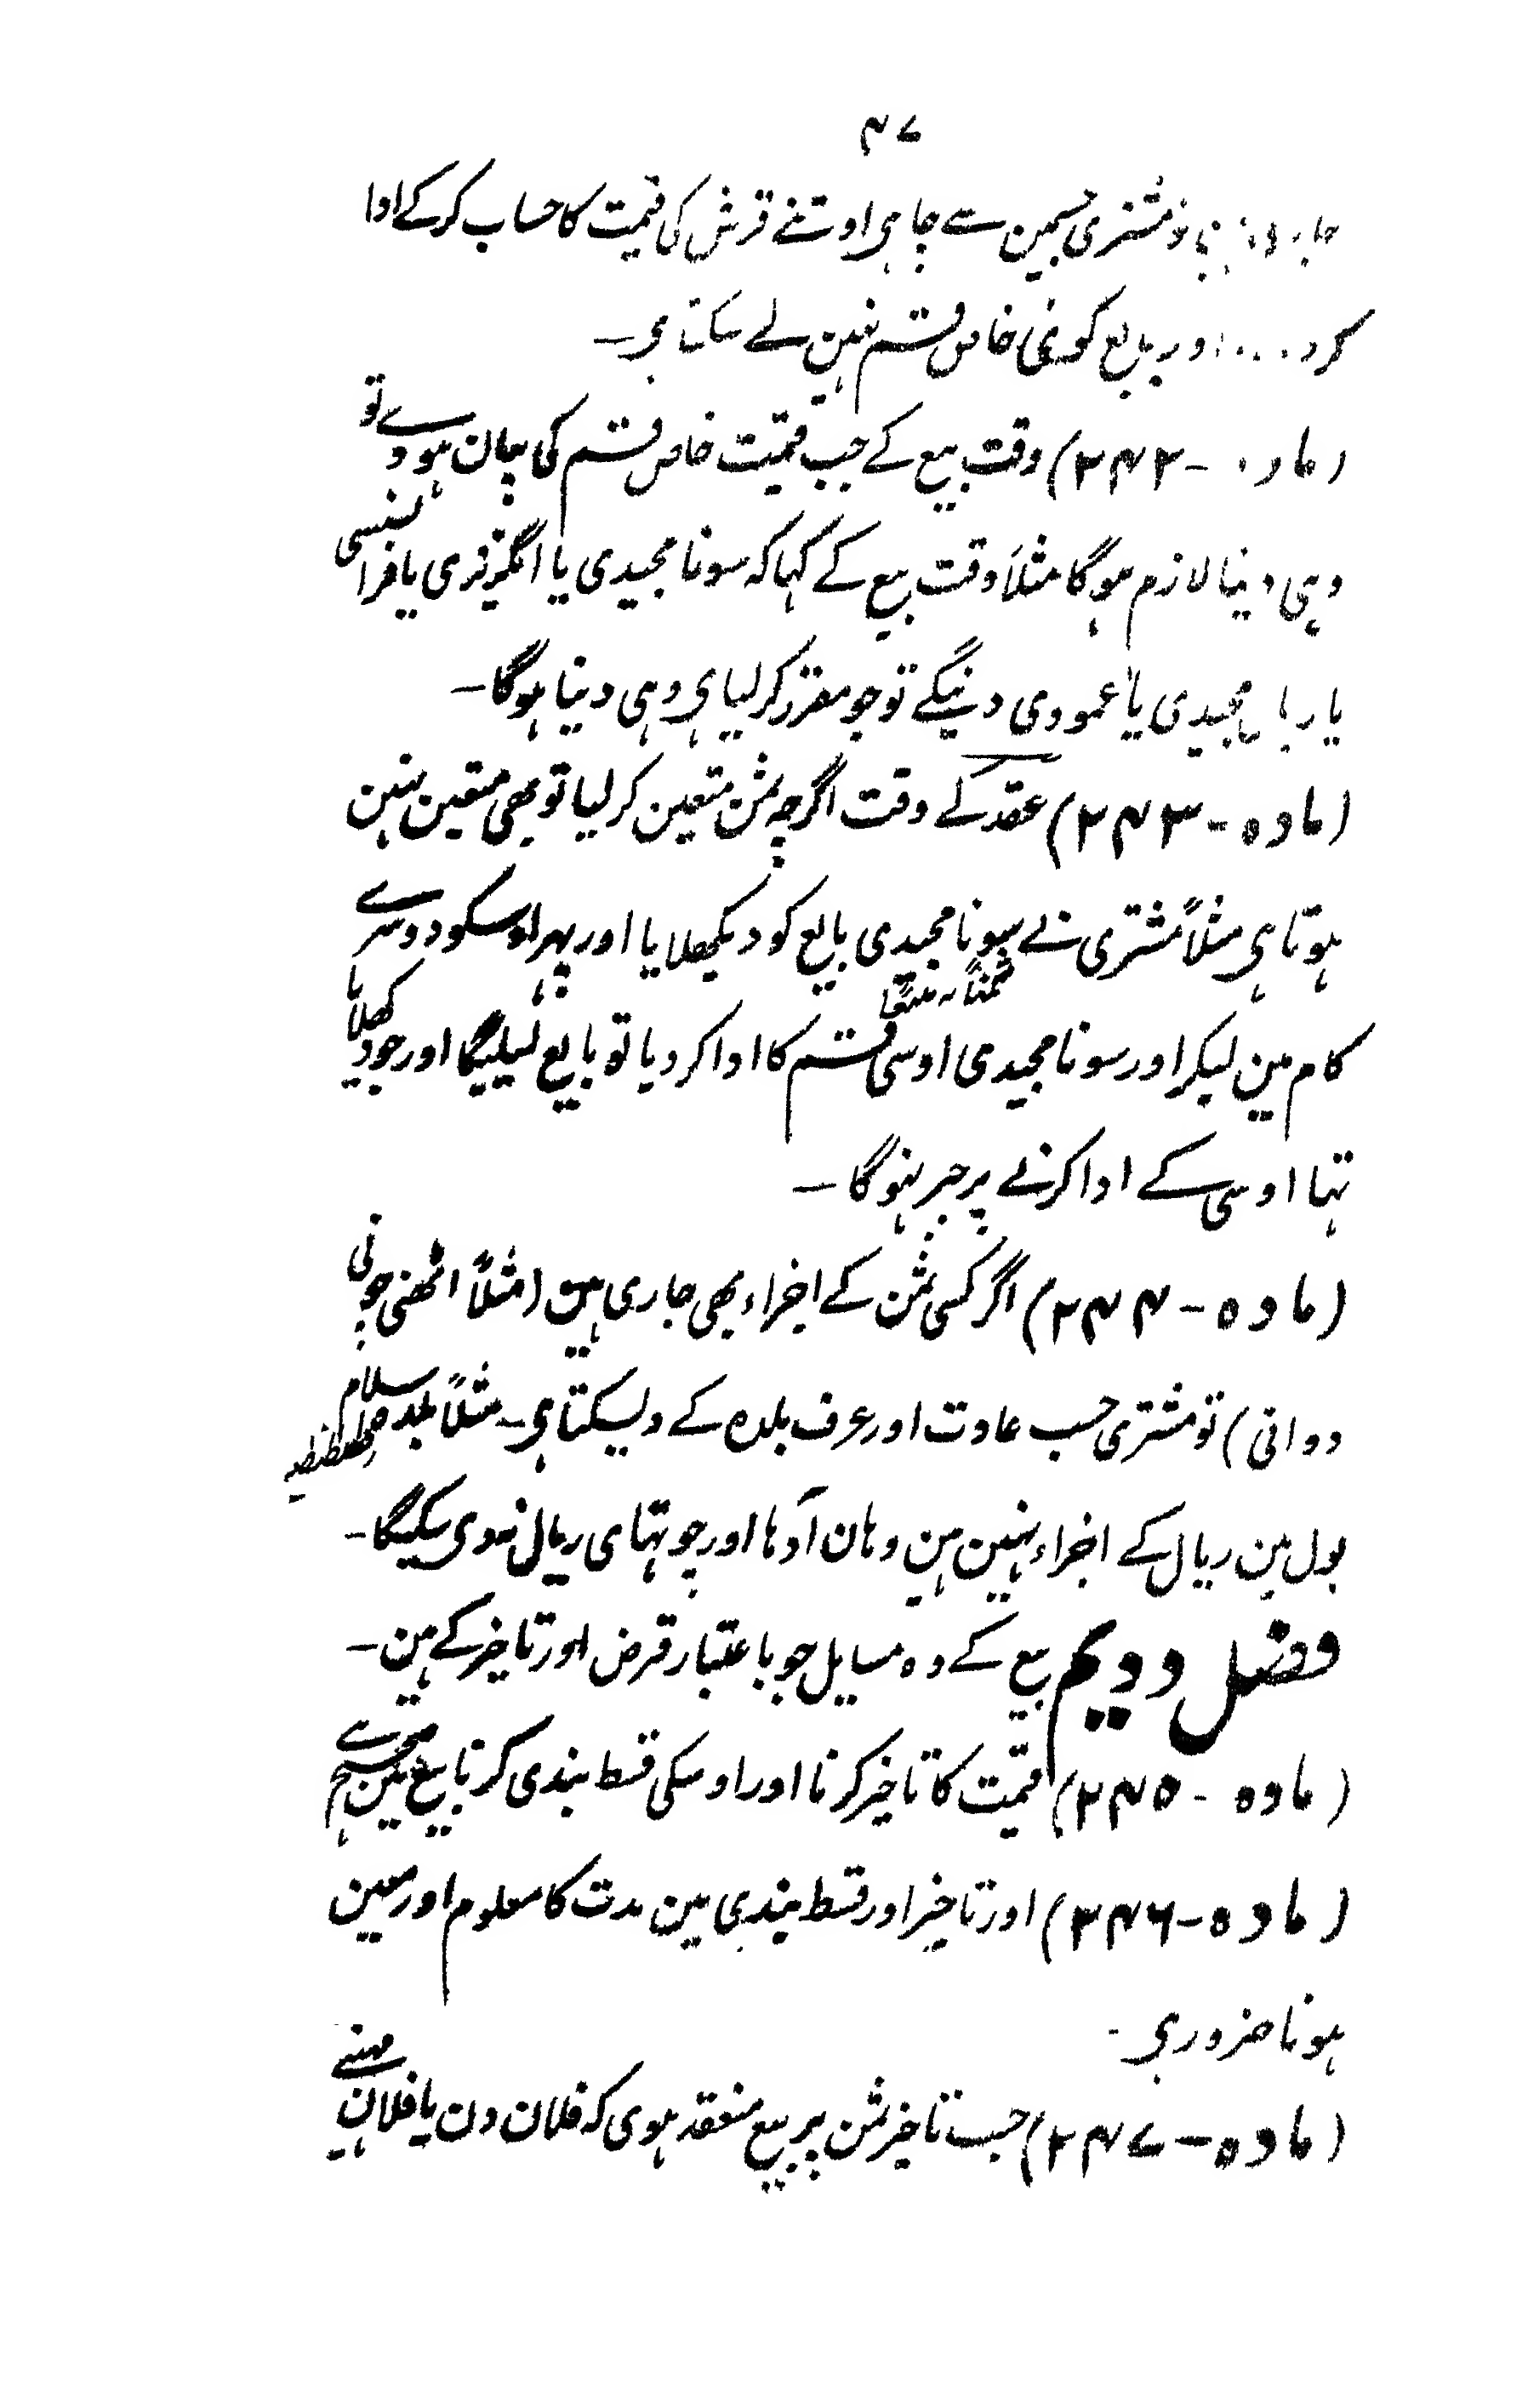 ۴۷
مشتری جسمین سے چاہی اوتنے قرش کی قیمت کا حساب کر کے ادا
اور بایع کوئی خاص قسم نہین لے سکتا ہی۔
(ماده - ۲۴۲) وقت بیع کے جب قیمت خاص قسم کی بیان ہووے تو
وہی دینا لازم ہوگا مثلاً وقت بیع کے کہا کہ سونا مجیدی یا انگریزی یا فرانسیسی
یا ریال مجیدی یا عمودی دینگے تو جو مقرر کر لیا ہی وہی دینا ہوگا۔
(ماده - ۲۴۳) عقد کے وقت اگرچہ ثمن متعین کر لیا تو بھی متعین نہین
ہوتا ہی مثلاً مشتری نے سونا مجیدی بایع کو دیکھلایا اور پہر اوسکو دوسرے
کام مین لیکر اور سونا مجیدی اوسی قسم کا ادا کر دیا تو بایع لیلیگا اور جو دیکھلایا
تہا اوسی کے ادا کرنے پر جبر نہوگا۔
(ماده - ۲۴۴) اگر کسی ثمن کے اجزاء بھی جاری ہین (مثلاً اٹھنی چونی
دوانی) تو مشتری حسب عادت اور عرف بلدہ کے دیسکتا ہی۔ مثلاً بلدہ
بول مین ریال کے اجزاء نہین ہین وہان آدہا اور چوتہای ریال ندی سکیگا۔
فصل دویم بیع کے وہ مسایل جو باعتبار قرض اور تاخیر کے ہین۔
(ماده - ۲۴۵) قیمت کا تاخیر کرنا اور اوسکی قسط بندی کرنا بیع مین صحیح ہے
(ماده - ۲۴۶) اور تاخیر اور قسط بندی مین مدت کا معلوم اور معین
ہونا ضرور ہی۔
(ماده - ۲۴۷) جب تاخیر ثمن پر بیع منعقد ہوی کہ فلان دن یا فلان مہینے